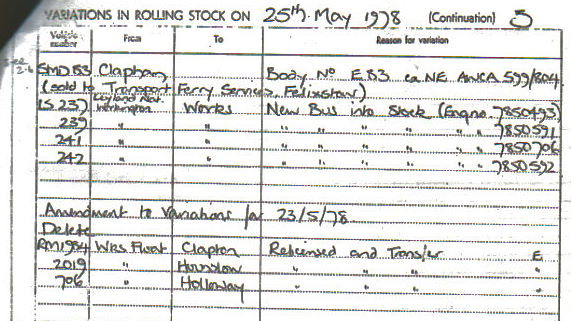 VARIATIONS IN ROLLING STOCK ON 25th. May 1978 (Continuation) 3
Vehicle number From To Reason for variation
SMD 83 Clapham Body No E83 ex NE AWCA 599/804
(sold to Transport Ferry Services, Felixstow)
LS 237 Leyland Nat. Workington Works New Bus into Stock (Eng no. 7850493)
239 " " " " " " " " 7850591
241 " " " " " " " " 7850706
242 " " " " " " " " 7850592
Amendment to Variations for 23/5/78
Delete
RM1984 Wks Float Clapton Relicensed and Transfer E
2019 " Hounslow " " " "
706 " Holloway " " " "